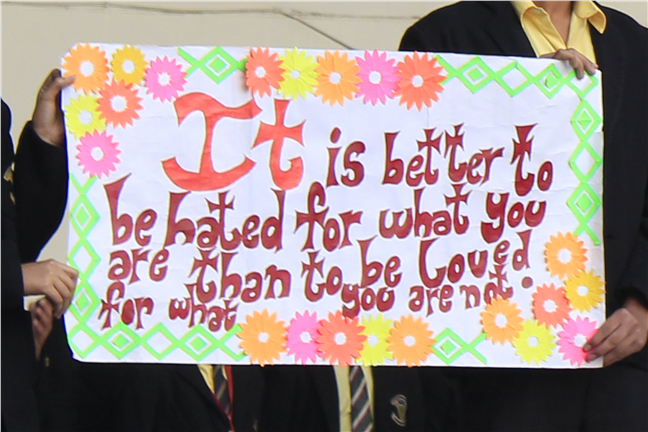 It is better to
be hated for what you
are than to be loved
for what you are not.